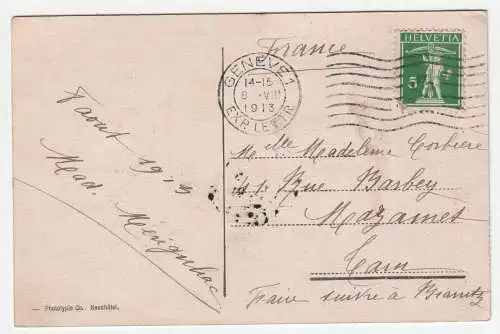 HELVETIA
5
GENÈVE 1
14-15
8 VIII
1913
EXP. LETTR.
France
Mlle Madeleine Corbière
Rue Barbey
Mazamet
Tarn
Faire suivre à Biarritz
7 aout 1913
Mad. Mérignhac
— Phototypie Co. Neuchâtel.